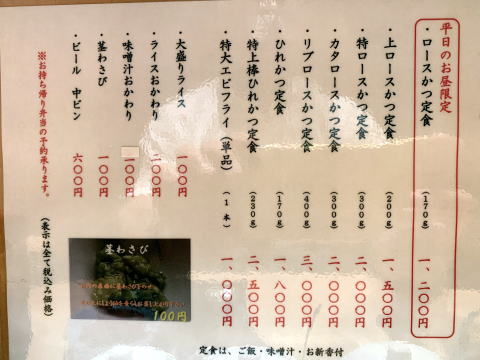 平日のお昼限定
・ロースかつ定食 (170g) 一、二〇〇円
・上ロースかつ定食 (200g) 一、五〇〇円
・特ロースかつ定食 (300g) 二、〇〇〇円
・カタロースかつ定食 (300g) 二、〇〇〇円
・リブロースかつ定食 (400g) 三、〇〇〇円
・ひれかつ定食 (170g) 一、八〇〇円
・特上棒ひれかつ定食 (230g) 二、五〇〇円
・特大エビフライ(単品) (1本) 一、〇〇〇円
・大盛りライス 一〇〇円
・ライスおかわり 二〇〇円
・味噌汁おかわり 一〇〇円
・茎わさび 一〇〇円
・ビール 中ビン 六〇〇円
※お持ち帰り弁当の予約承ります。
(表示は全て税込み価格)
茎わさび
100円
定食は、ご飯・味噌汁・お新香付